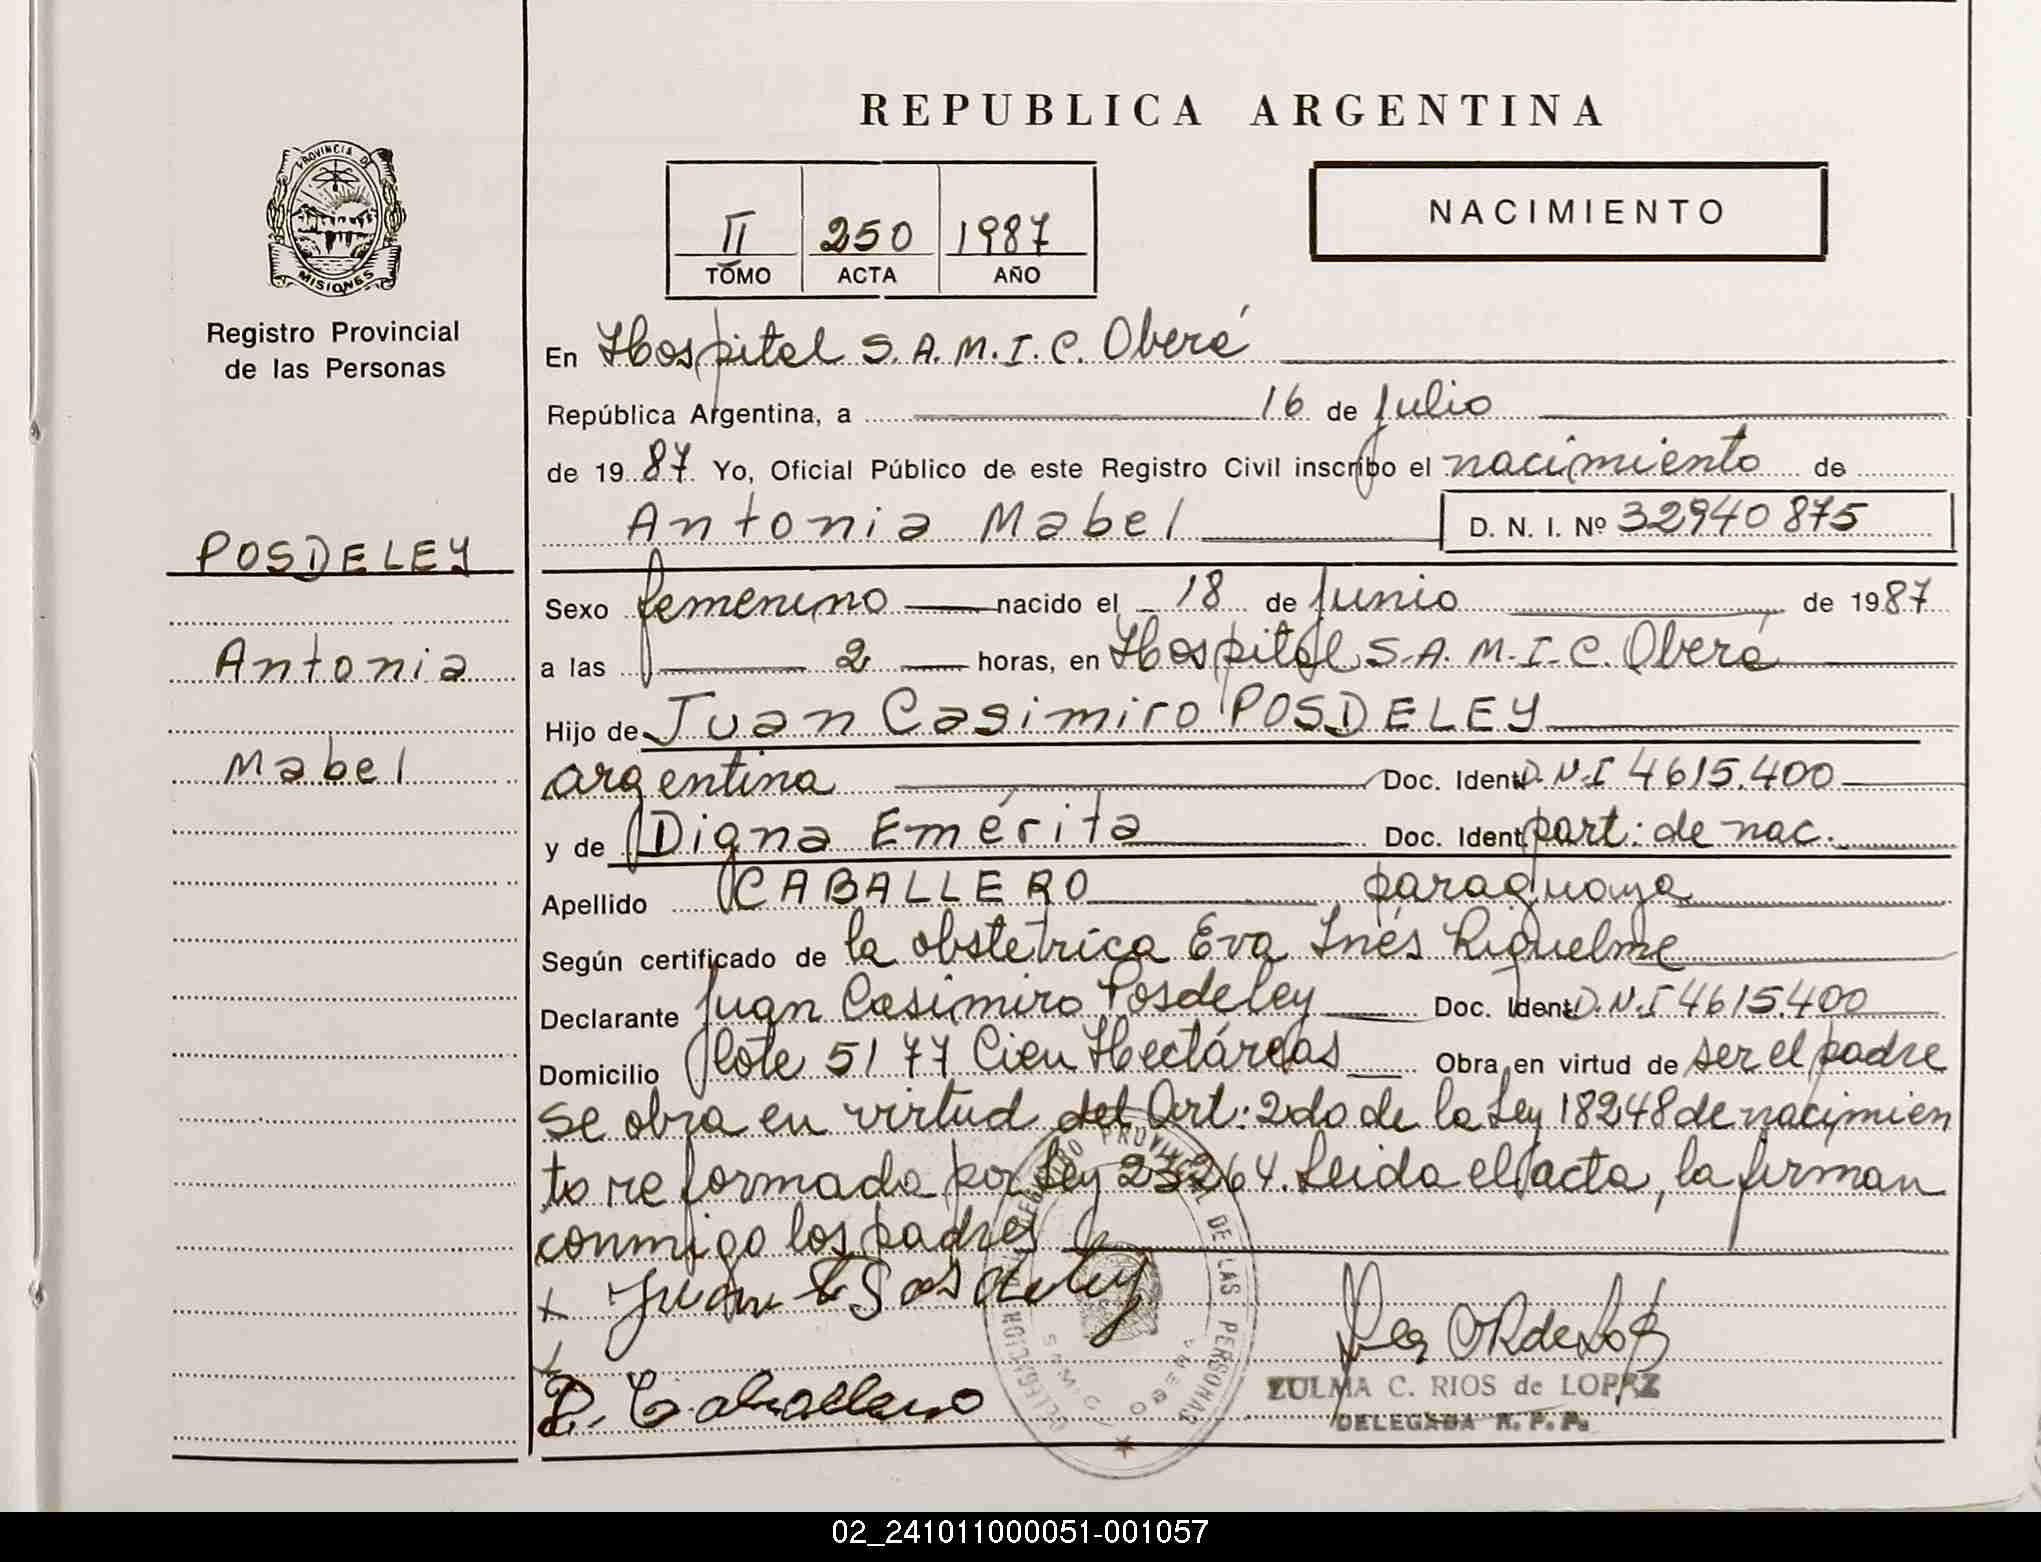 REPUBLICA ARGENTINA
PROVINCIA DE
MISIONES
Registro Provincial
de las Personas
II 250 1987
TOMO ACTA AÑO
NACIMIENTO
POSDELEY
Antonia
Mabel
En Hospital S.A.M.I.C. Oberá
República Argentina, a 16 de Julio
de 1987 Yo, Oficial Público de este Registro Civil inscribo el nacimiento de
Antonia Mabel D. N. I. Nº 32940875
Sexo femenino nacido el 18 de Junio de 1987
a las 2 horas, en Hospital S.A.M.I.C. Oberá
Hijo de Juan Casimiro POSDELEY
argentina Doc. Ident. D.N.I 4615.400
y de Digna Emérita Doc. Ident. part: de nac.
Apellido CABALLERO paraguaya
Según certificado de la obstetrica Eva Inés Riquelme
Declarante Juan Casimiro Posdeley Doc. Ident. D.N.I 4615.400
Domicilio lote 5177 Cien Hectáreas Obra en virtud de ser el padre
se obra en virtud del Art: 2do de la Ley 18248 de nacimien
to reformada por Ley 23264. Leida el acta, la firman
conmigo los padres
Juan C Posdeley
D. Caballero
ZULMA C. RIOS de LOPEZ
DELEGADA R. P. P.
REGISTRO PROVINCIAL DE LAS PERSONAS
DELEGACION
S.A.M.I.C. OBERA
02_241011000051-001057